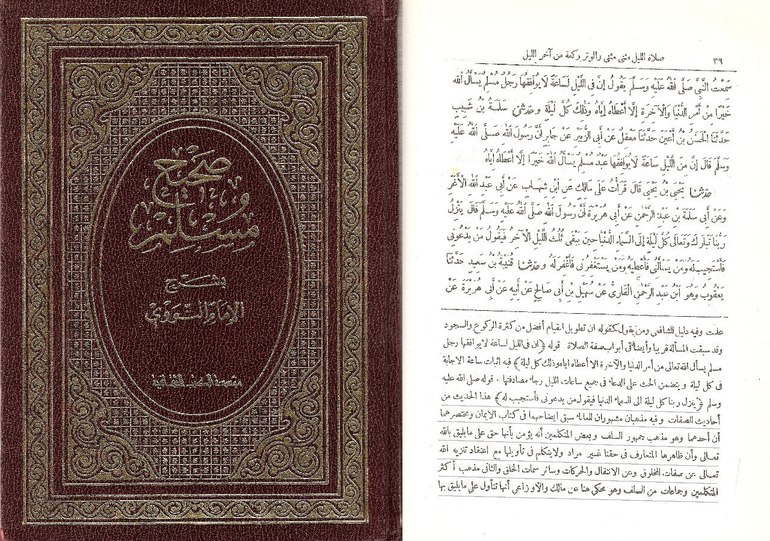 صحيح
مسلم
بشرح
الإمام النووي
مؤسسة الكتب الثقافية
٣٦
صلاة الليل مثنى مثنى والوتر ركعة من آخر الليل
سَمِعْتُ النَّبِيَّ صَلَّى اللهُ عَلَيْهِ وَسَلَّمَ يَقُولُ إِنَّ فِى اللَّيْلِ لَسَاعَةً لَا يُوَافِقُهَا رَجُلٌ مُسْلِمٌ يَسْأَلُ اللهَ
خَيْرًا مِنْ أَمْرِ الدُّنْيَا وَالْآخِرَةِ إِلَّا أَعْطَاهُ إِيَّاهُ وَذٰلِكَ كُلَّ لَيْلَةٍ وحدثنى سَلَمَةُ بْنُ شَبِيبٍ
حَدَّثَنَا الْحَسَنُ بْنُ أَعْيَنَ حَدَّثَنَا مَعْقِلٌ عَنْ أَبِى الزُّبَيْرِ عَنْ جَابِرٍ أَنَّ رَسُولَ اللهِ صَلَّى اللهُ عَلَيْهِ
وَسَلَّمَ قَالَ إِنَّ مِنَ اللَّيْلِ سَاعَةً لَا يُوَافِقُهَا عَبْدٌ مُسْلِمٌ يَسْأَلُ اللهَ خَيْرًا إِلَّا أَعْطَاهُ إِيَّاهُ
حدثنا يَحْيَى بْنُ يَحْيَى قَالَ قَرَأْتُ عَلَى مَالِكٍ عَنِ ابْنِ شِهَابٍ عَنْ أَبِى عَبْدِ اللهِ الْأَغَرِّ
وَعَنْ أَبِى سَلَمَةَ بْنِ عَبْدِ الرَّحْمٰنِ عَنْ أَبِى هُرَيْرَةَ أَنَّ رَسُولَ اللهِ صَلَّى اللهُ عَلَيْهِ وَسَلَّمَ قَالَ يَنْزِلُ
رَبُّنَا تَبَارَكَ وَتَعَالَى كُلَّ لَيْلَةٍ إِلَى السَّمَاءِ الدُّنْيَا حِينَ يَبْقَى ثُلُثُ اللَّيْلِ الْآخِرُ فَيَقُولُ مَنْ يَدْعُونِى
فَأَسْتَجِيبَ لَهُ وَمَنْ يَسْأَلُنِى فَأُعْطِيَهُ وَمَنْ يَسْتَغْفِرُنِى فَأَغْفِرَ لَهُ وحدثنا قُتَيْبَةُ بْنُ سَعِيدٍ حَدَّثَنَا
يَعْقُوبُ وَهُوَ ابْنُ عَبْدِ الرَّحْمٰنِ الْقَارِىُّ عَنْ سُهَيْلِ بْنِ أَبِى صَالِحٍ عَنْ أَبِيهِ عَنْ أَبِى هُرَيْرَةَ عَنْ
وفيه دليل للشافعى ومن يقول كقوله ان تطويل القيام أفضل من كثرة الركوع والسجود
وقد سبقت المسألة قريبا وأيضا فى أبواب صفة الصلاة قوله ﴿ان فى الليل لساعة لا يوافقها رجل
مسلم يسأل الله تعالى من أمر الدنيا والآخرة الا أعطاه اياه وذلك كل ليلة﴾ فيه اثبات ساعة الاجابة
فى كل ليلة ويتضمن الحث على الدعاء فى جميع ساعات الليل رجاء مصادفتها . قوله صلى الله عليه
وسلم ﴿ينزل ربنا كل ليلة الى السماء الدنيا فيقول من يدعونى فأستجيب له﴾ هذا الحديث من
أحاديث الصفات وفيه مذهبان مشهوران للعلماء سبق ايضاحهما فى كتاب الايمان ومختصرهما
أن أحدهما وهو مذهب جمهور السلف وبعض المتكلمين أنه يؤمن بأنها حق على مايليق بالله
تعالى وأن ظاهرها المتعارف فى حقنا غير مراد ولا يتكلم فى تأويلها مع اعتقاد تنزيه الله
تعالى عن صفات المخلوق وعن الانتقال والحركات وسائر سمات الخلق والثانى مذهب أكثر
المتكلمين وجماعات من السلف وهو محكى هنا عن مالك والاوزاعى أنها تتأول على مايليق بها